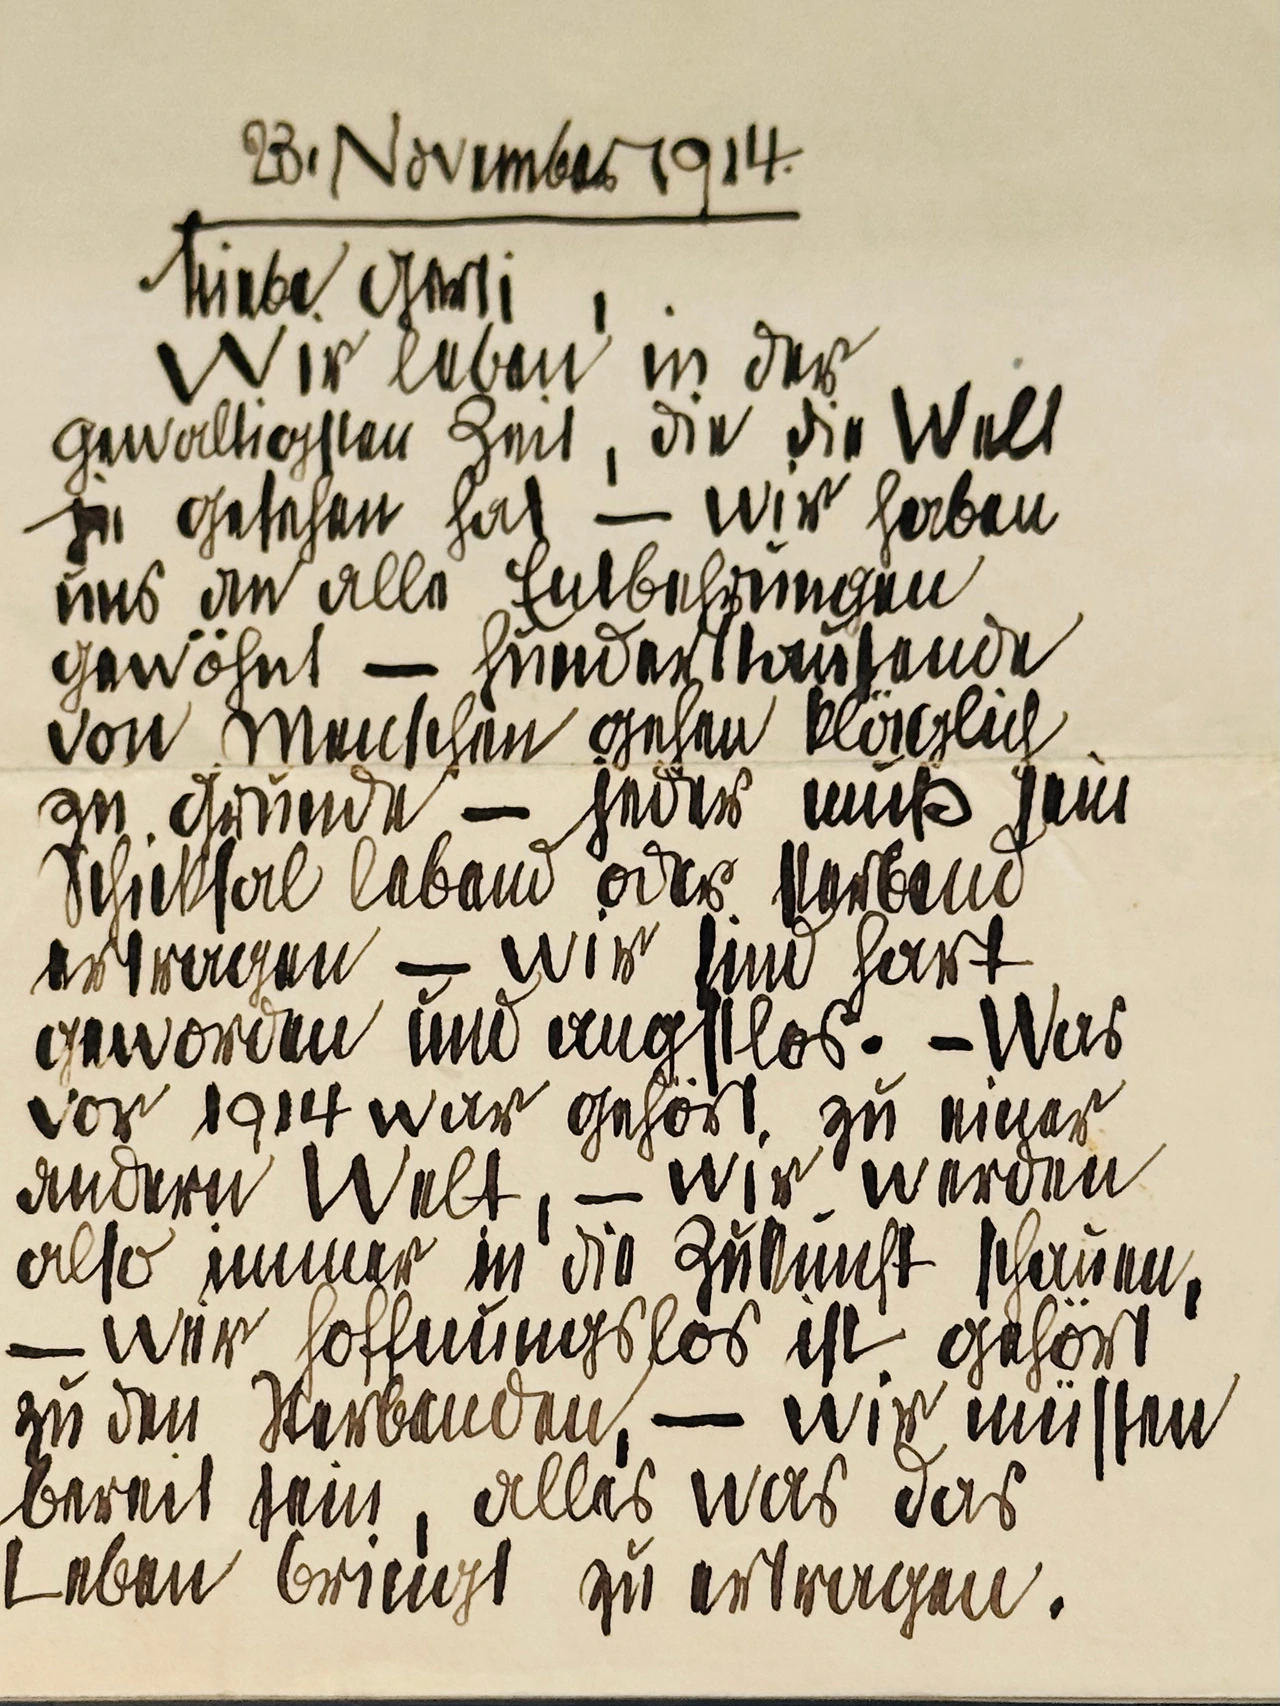 23. November 1914.
Liebe Gerti,
Wir leben in der
gewaltigsten Zeit, die die Welt
je gesehen hat – wir haben
uns an alle Entbehrungen
gewöhnt – hunderttausende
von Menschen gehen kläglich
zu Grunde – jeder muß sein
Schicksal lebend oder sterbend
ertragen – wir sind hart
geworden und angstlos. – Was
vor 1914 war gehört zu einer
andern Welt, – wir werden
also immer in die Zukunft schauen,
– wer hoffnungslos ist gehört
zu den Sterbenden, – wir müssen
bereit sein, alles was das
Leben bringt zu ertragen.